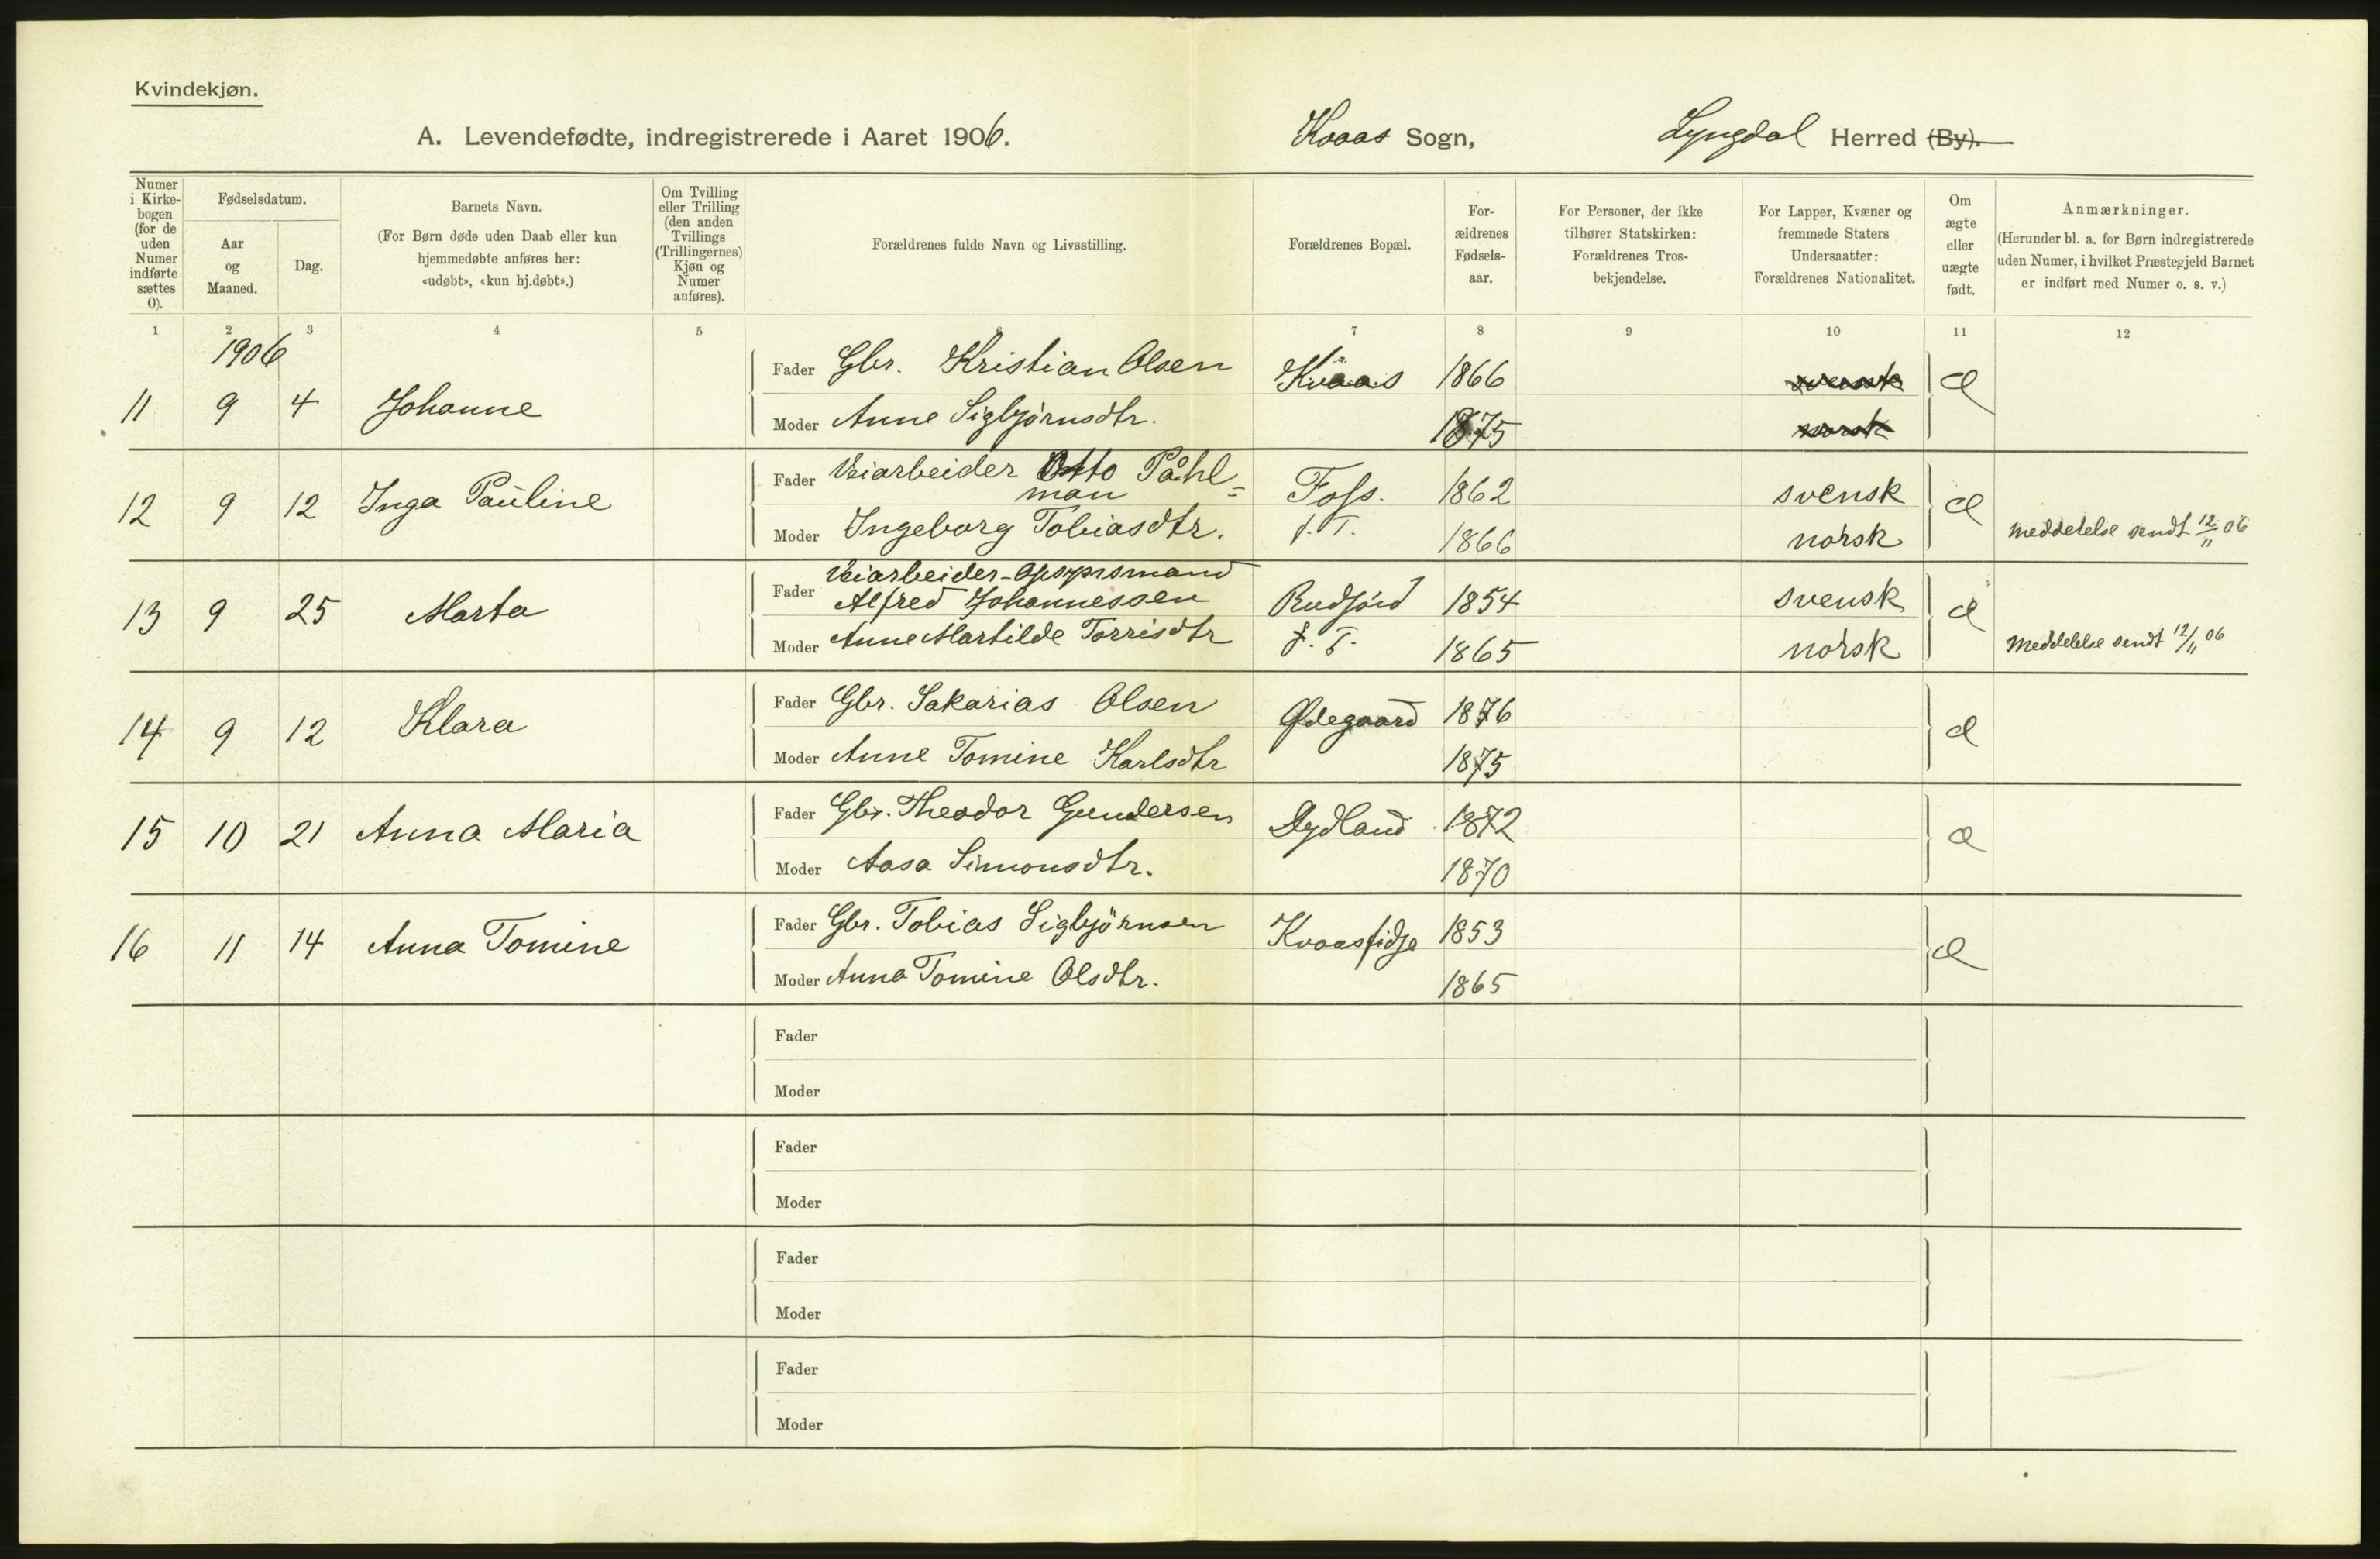 Kvindekjøn.
A. Levendefødte, indregistrerede i Aaret 1906.
Kvaas Sogn,
Lyngdal Herred (By).
Numer i Kirkebogen (for de uden Numer indførte sættes 0).
Fødselsdatum.
Aar og Maaned.
Dag.
Barnets Navn.
(For Børn døde uden Daab eller kun hjemmedøbte anføres her: «udøbt», «kun hj.døbt».)
Om Tvilling eller Trilling (den anden Tvillings (Trillingernes) Kjøn og Numer anføres).
Forældrenes fulde Navn og Livsstilling.
Forældrenes Bopæl.
Forældrenes Fødselsaar.
For Personer, der ikke tilhører Statskirken: Forældrenes Trosbekjendelse.
For Lapper, Kvæner og fremmede Staters Undersaatter: Forældrenes Nationalitet.
Om ægte eller uægte født.
Anmærkninger.
(Herunder bl. a. for Børn indregistrerede uden Numer, i hvilket Præstegjeld Barnet er indført med Numer o. s. v.)
1 2 3 4 5 6 7 8 9 10 11 12
1906
Fader Gbr. Kristian Olsen Kvaas 1866 svensk
11 9 4 Johanne æ
Moder Anne Sigbjørnsdtr. 1875 norsk
Fader Veiarbeider Otto Påhl=
man Foss. 1862 svensk
12 9 12 Inga Pauline æ
Moder Ingeborg Tobiasdtr. f. T. 1866 norsk Meddelelse sendt 12/11 06
Veiarbeider-Opsynsmand
Fader Alfred Johannessen Rudjord 1854 svensk
13 9 25 Marta æ
Moder Anne Martilde Torrisdtr f. T. 1865 norsk Meddelelse sendt 12/11 06
Fader Gbr. Sakarias Olsen Ødegaard 1876
14 9 12 Klara æ
Moder Anne Tomine Karlsdtr 1875
Fader Gbr. Theodor Gundersen Dydland 1872
15 10 21 Anna Maria æ
Moder Aasa Simonsdtr. 1870
Fader Gbr. Tobias Sigbjörnsen Kvaasfidje 1853
16 11 14 Anna Tomine æ
Moder Anna Tomine Olsdtr. 1865
Fader
Moder
Fader
Moder
Fader
Moder
Fader
Moder